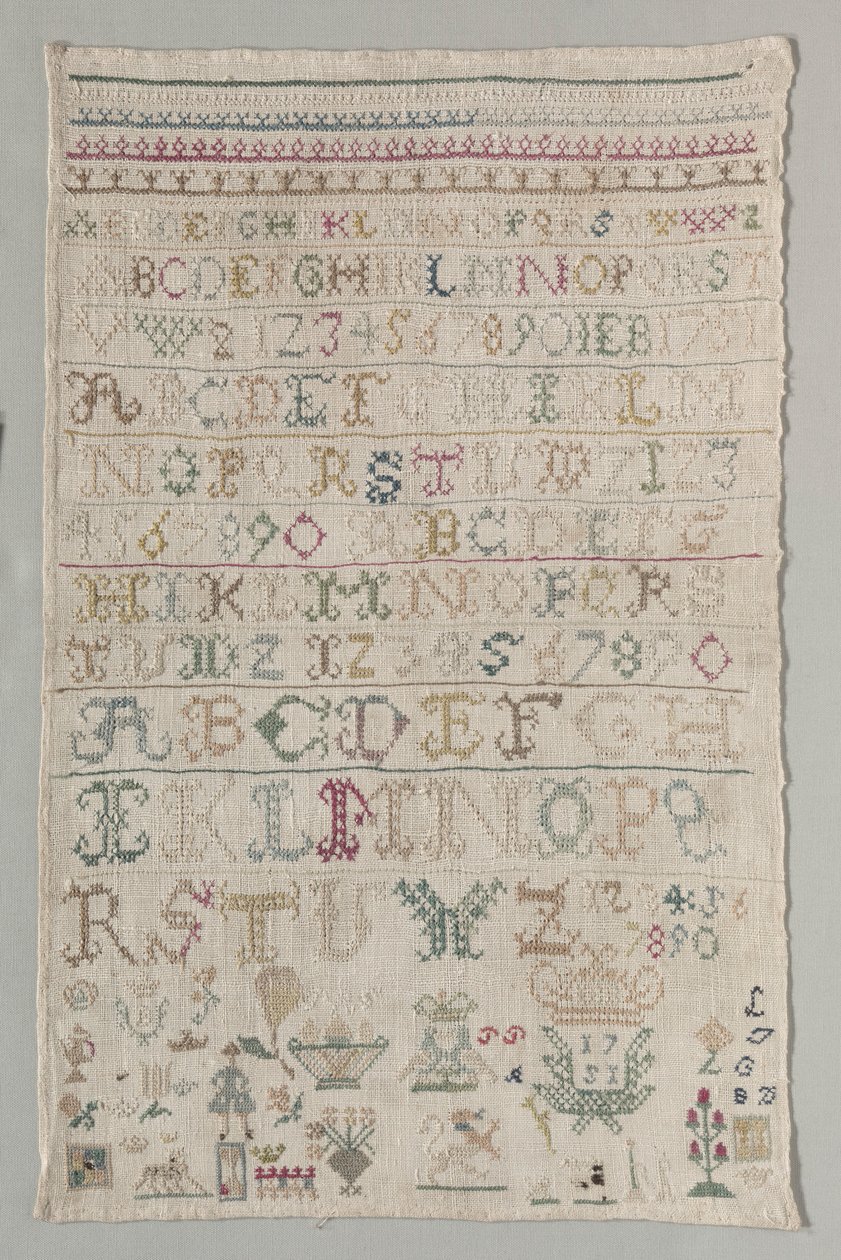 A B C D E F G H I K L M N O P Q R S T V W X Z
A B C D E F G H I K L M N O P Q R S T
V W Z 1 2 3 4 5 6 7 8 9 0 I E B 1 7 5 1
A B C D E F G H I K L M
N O P Q R S T U W Z 1 2 3
4 5 6 7 8 9 0 A B C D E F G
H I K L M N O P Q R S
T U W Z 1 2 3 4 5 6 7 8 9 0
A B C D E F G H
I K L M N O P Q
R S T U W Z 1 2 3 4 5 6
7 8 9 0
17
51